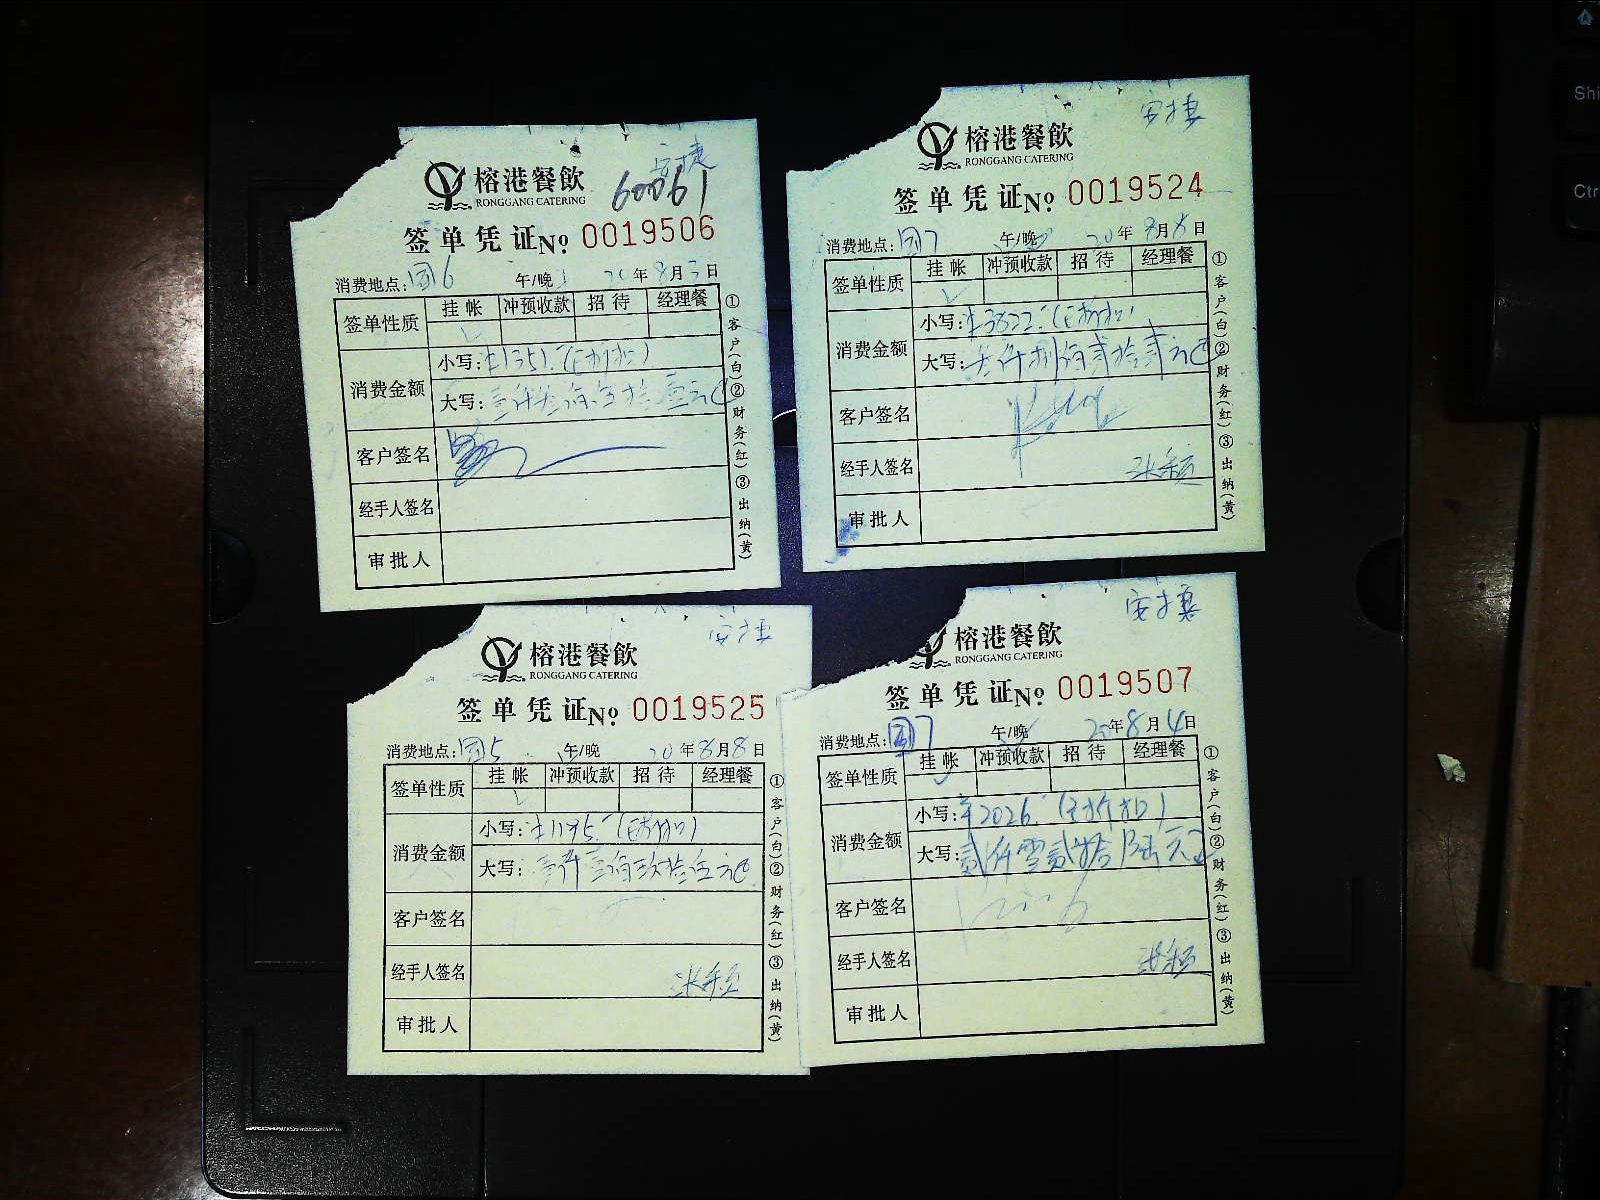 安捷
榕港餐飲
RONGGANG CATERING
60061
签单凭证No 0019506
消费地点: 国6 午/晚 20年8月3日
签单性质 挂帐 冲预收款 招待 经理餐
消费金额 小写: ¥1351.-(已折扣)
大写: 壹仟叁佰伍拾壹元正
客户签名
经手人签名
审批人
①客户(白)②财务(红)③出纳(黄)
安捷
榕港餐飲
RONGGANG CATERING
签单凭证No 0019524
消费地点: 国7 午/晚 20年8月8日
签单性质 挂帐 冲预收款 招待 经理餐
消费金额 小写: ¥3822.-(已折扣)
大写: 叁仟捌佰贰拾贰元正
客户签名
经手人签名 张颖
审批人
①客户(白)②财务(红)③出纳(黄)
安捷
榕港餐飲
RONGGANG CATERING
签单凭证No 0019525
消费地点: 国5 午/晚 20年8月8日
签单性质 挂帐 冲预收款 招待 经理餐
消费金额 小写: ¥1195.-(已折扣)
大写: 壹仟壹佰玖拾伍元正
客户签名
经手人签名 张颖
审批人
①客户(白)②财务(红)③出纳(黄)
安捷
榕港餐飲
RONGGANG CATERING
签单凭证No 0019507
消费地点: 国7 午/晚 20年8月4日
签单性质 挂帐 冲预收款 招待 经理餐
消费金额 小写: ¥2026.-(已折扣)
大写: 贰仟零贰拾陆元正
客户签名
经手人签名 张颖
审批人
①客户(白)②财务(红)③出纳(黄)
Shi
Ctr